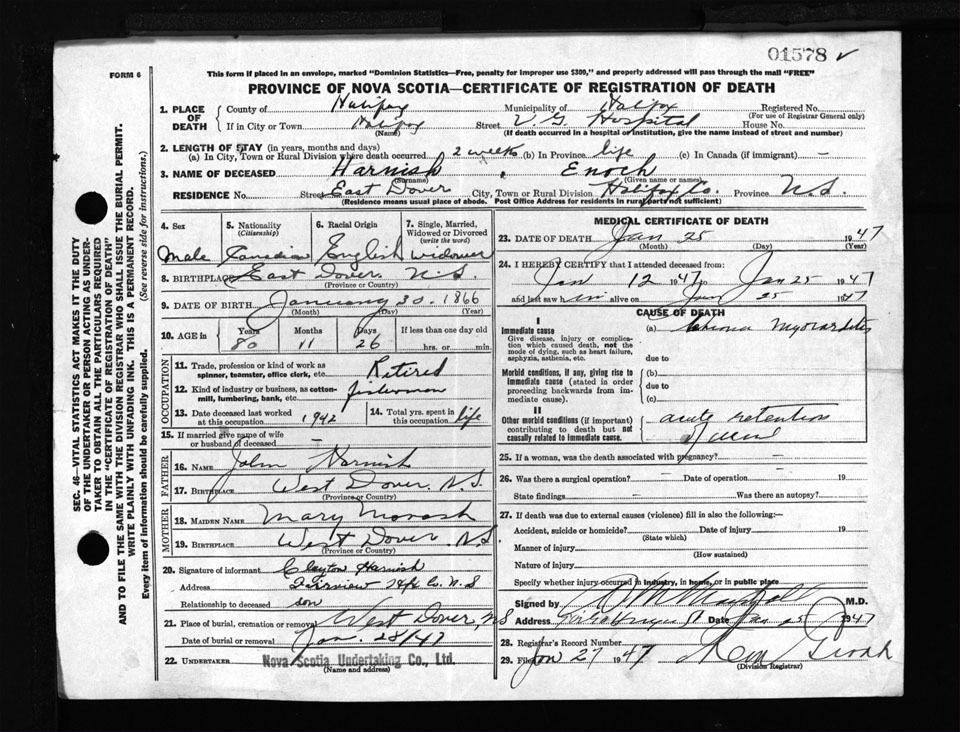 01578 ✓
FORM 6
This form if placed in an envelope, marked "Dominion Statistics—Free, penalty for improper use $300," and properly addressed will pass through the mail "FREE"
PROVINCE OF NOVA SCOTIA—CERTIFICATE OF REGISTRATION OF DEATH
SEC. 46—VITAL STATISTICS ACT MAKES IT THE DUTY
OF THE UNDERTAKER OR PERSON ACTING AS UNDER-
TAKER TO OBTAIN ALL THE PARTICULARS REQUIRED
IN THE "CERTIFICATE OF REGISTRATION OF DEATH"
AND TO FILE THE SAME WITH THE DIVISION REGISTRAR WHO SHALL ISSUE THE BURIAL PERMIT.
WRITE PLAINLY WITH UNFADING INK. THIS IS A PERMANENT RECORD.
Every item of information should be carefully supplied. (See reverse side for instructions.)
1. PLACE OF DEATH County of Halifax Municipality of Halifax Registered No.
(For use of Registrar General only)
If in City or Town Halifax Street V. G. Hospital House No.
(Name) (If death occurred in a hospital or institution, give the name instead of street and number)
2. LENGTH OF STAY (in years, months and days)
(a) In City, Town or Rural Division where death occurred 2 weeks (b) In Province life (c) In Canada (if immigrant) —
3. NAME OF DECEASED Harnish, Enoch
(Surname) (Given name or names)
RESIDENCE No. Street East Dover City, Town or Rural Division Halifax Co. Province N.S.
(Residence means usual place of abode. Post Office Address for residents in rural parts not sufficient)
4. Sex 5. Nationality (Citizenship) 6. Racial Origin 7. Single, Married, Widowed or Divorced (write the word)
Male Canadian English widower
8. BIRTHPLACE East Dover. N.S.
(Province or Country)
9. DATE OF BIRTH January 30. 1866
(Month) (Day) (Year)
10. AGE in Years Months Days If less than one day old
80 11 26 hrs. or min.
OCCUPATION
11. Trade, profession or kind of work as spinner, teamster, office clerk, etc. Retired
12. Kind of industry or business, as cotton-mill, lumbering, bank, etc. fisherman
13. Date deceased last worked at this occupation 1942 14. Total yrs. spent in this occupation life
15. If married give name of wife or husband of deceased —
FATHER
16. NAME John Harnish
17. BIRTHPLACE West Dover. N.S.
(Province or Country)
MOTHER
18. MAIDEN NAME Mary Morash
19. BIRTHPLACE West Dover. N.S
(Province or Country)
20. Signature of informant Clayton Harnish
Address Fairview Hfx Co. N.S
Relationship to deceased son
21. Place of burial, cremation or removal West Dover, N.S
Date of burial or removal Jan. 28/47
22. UNDERTAKER Nova Scotia Undertaking Co., Ltd.
(Name and address)
MEDICAL CERTIFICATE OF DEATH
23. DATE OF DEATH Jan 25 1947
(Month) (Day) (Year)
24. I HEREBY CERTIFY that I attended deceased from:
Jan 12 1947 to Jan 25 1947
and last saw him alive on Jan 25 1947
CAUSE OF DEATH
I
Immediate cause (a) chronic myocarditis
Give disease, injury or complication which caused death, not the mode of dying, such as heart failure, asphyxia, asthenia, etc.
due to
Morbid conditions, if any, giving rise to immediate cause (stated in order proceeding backwards from immediate cause). (b)
due to
(c)
II
Other morbid conditions (if important) contributing to death but not causally related to immediate cause. acute retention
of urine
25. If a woman, was the death associated with pregnancy? —
26. Was there a surgical operation? — Date of operation — 19
State findings Was there an autopsy?
27. If death was due to external causes (violence) fill in also the following:—
Accident, suicide or homicide? Date of injury 19
(State which)
Manner of injury
(How sustained)
Nature of injury
Specify whether injury occurred in industry, in home, or in public place
Signed by M.D.
Address Date Jan 25 1947
28. Registrar's Record Number
29. Filed Jan 27 1947
(Division Registrar)